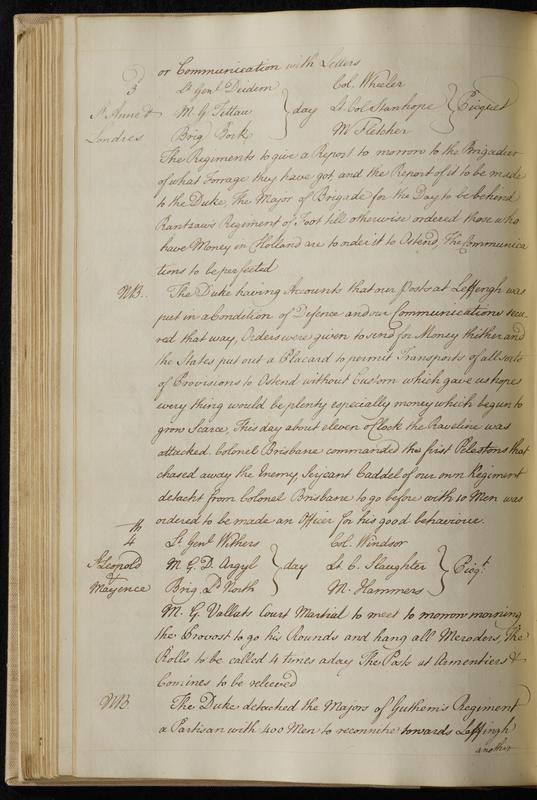 or Communication with Letters
3d Lt Genl Deidem Col. Wheeler
St Anne & M. G Tettau day Lt Col Stanhope Picquet
Londres Brig York M Fletcher
The Regiments to give a Report to morrow to the Brigadier
of what Forrage they have got, and the Report of it to be made
to the Duke, The Major of Brigade for the Day to be behind
Rantzaw's Regiment of Foot till otherwise ordered those who
have Money in Holland are to order it to Ostend, The Communica
tions to be perfected
NB. The Duke having Accounts that our Posts at Leffengh was
put in a Condition of Defence and our Communications secu
red that way, Orders were given to send for Money thither and
the States put out a Placard to permit Transports of all sorts
of Provisions to Ostend without Custom which gave us hopes
every thing would be plenty especially money which begun to
grow Scarce, This day about eleven o'Clock the Raveline was
attacked Colonel Brisbane commanded the first Pelestons that
chased away the Enemy, Serjeant Caddel of our own Regiment
detacht from Colonel Brisbane to go before with 10 Men was
ordered to be made an Officer for his good behaviour.
4th Lt Genl Withers Col. Windsor
St Leopold & M. G D. Argyl day Lt C. Slaughter Picqt.
Mayence Brig. Ld North M. Hammers
M. G Vallats Court Martial to meet to morrow morning
the Provost to go his Rounds and hang all Meroders, The
Rolls to be called 4 times a day The Posts at Armentiers &
Comines to be relieved
NB The Duke detached the Majors of Guthem's Regiment
a Partisan with 400 Men to reconnitre towards Leffingh
another